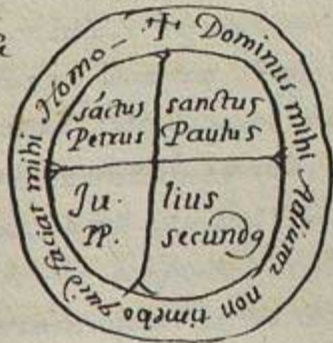 ✝ Dominus mihi Adiutor non timebo quid faciat mihi Homo
sáctus sanctus
Petrus Paulus
Ju. lius
PP. secundꝯ